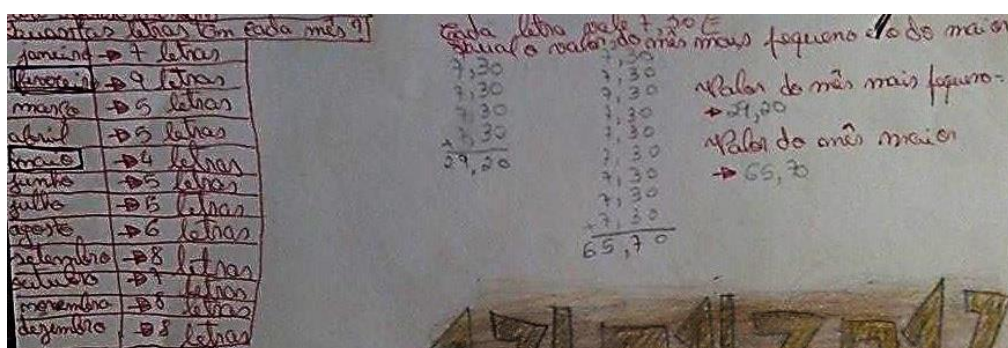 quantas letras em cada mês?
janeiro → 7 letras
fevereiro → 9 letras
março → 5 letras
abril → 5 letras
maio → 4 letras
junho → 5 letras
julho → 5 letras
agosto → 6 letras
setembro → 8 letras
outubro → 7 letras
novembro → 8 letras
dezembro → 8 letras
Cada letra vale 7,30 €
Qual o valor do mês mais pequeno e o do maior
7,30
7,30
7,30
+ 7,30
29,20
7,30
7,30
7,30
7,30
7,30
7,30
7,30
7,30
+ 7,30
65,70
Valor do mês mais pequeno =
→ 29,20
Valor do mês maior
→ 65,70